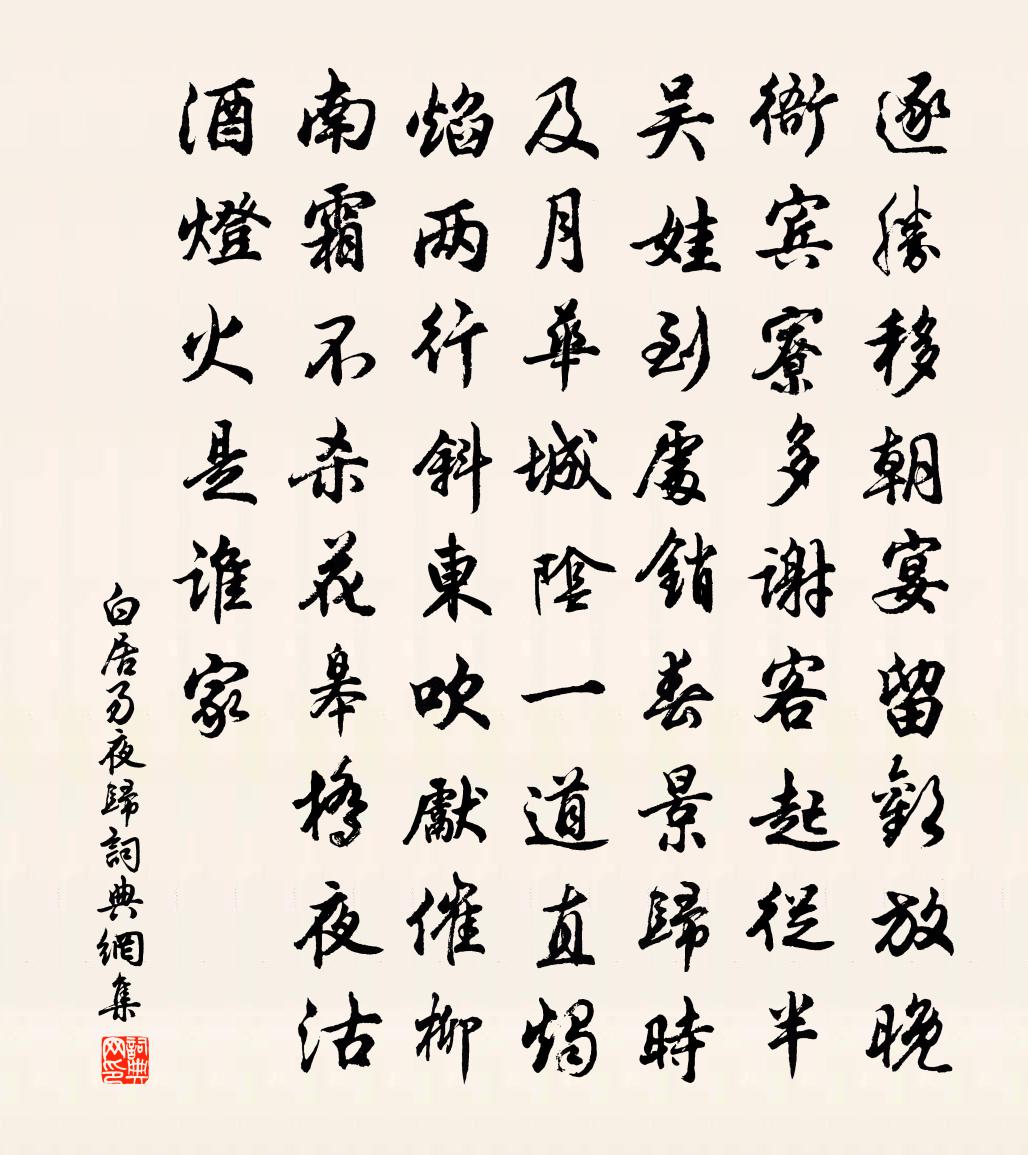 逐勝移朝宴留歡放晚
衙賓寮多謝客起從半
吴娃到處銷春景歸時
及月華城陰一道直燭
焰两行斜東吹獻催柳
南霜不杀花皋橋夜沽
酒燈火是誰家
白居易夜歸詞典網集
詞典网印